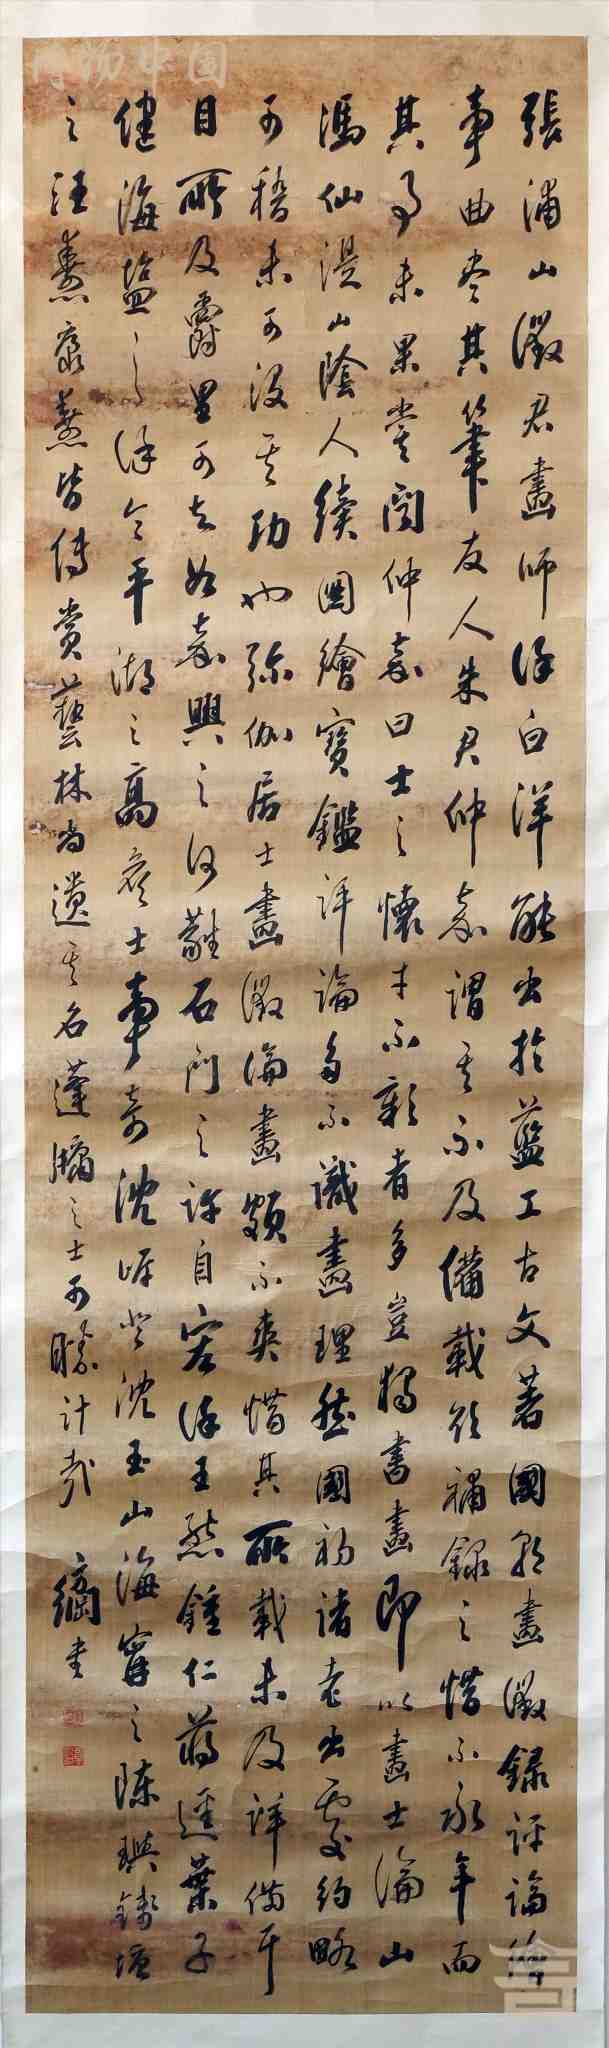 張浦山徵君畫師徐白洋能出於藍工古文著國朝畫徵錄評論繪
事曲盡其筆友人朱君仲嘉謂其不及備載欲補錄之惜不永年而
其事未果嘗聞仲嘉曰士之懷才不彰者多豈獨書畫即以畫士論山
馮仙湜山陰人續圖繪寶鑑評論多不識畫理然國初諸老出處約略
可稽未可沒其功也弥伽居士畫徵論畫頗不爽惜其所載未及詳備耳
目所及爵里可知如嘉興之石門之許自宏徐王熊鍾仁蔣逕葉子
健海鹽之徐令平湖之高士奇沈沈玉山海寧之陳璵錢垣
之汪燾皆傳賞藝林尚遺其名蓬牖之士可勝計哉
綱書
博物中国